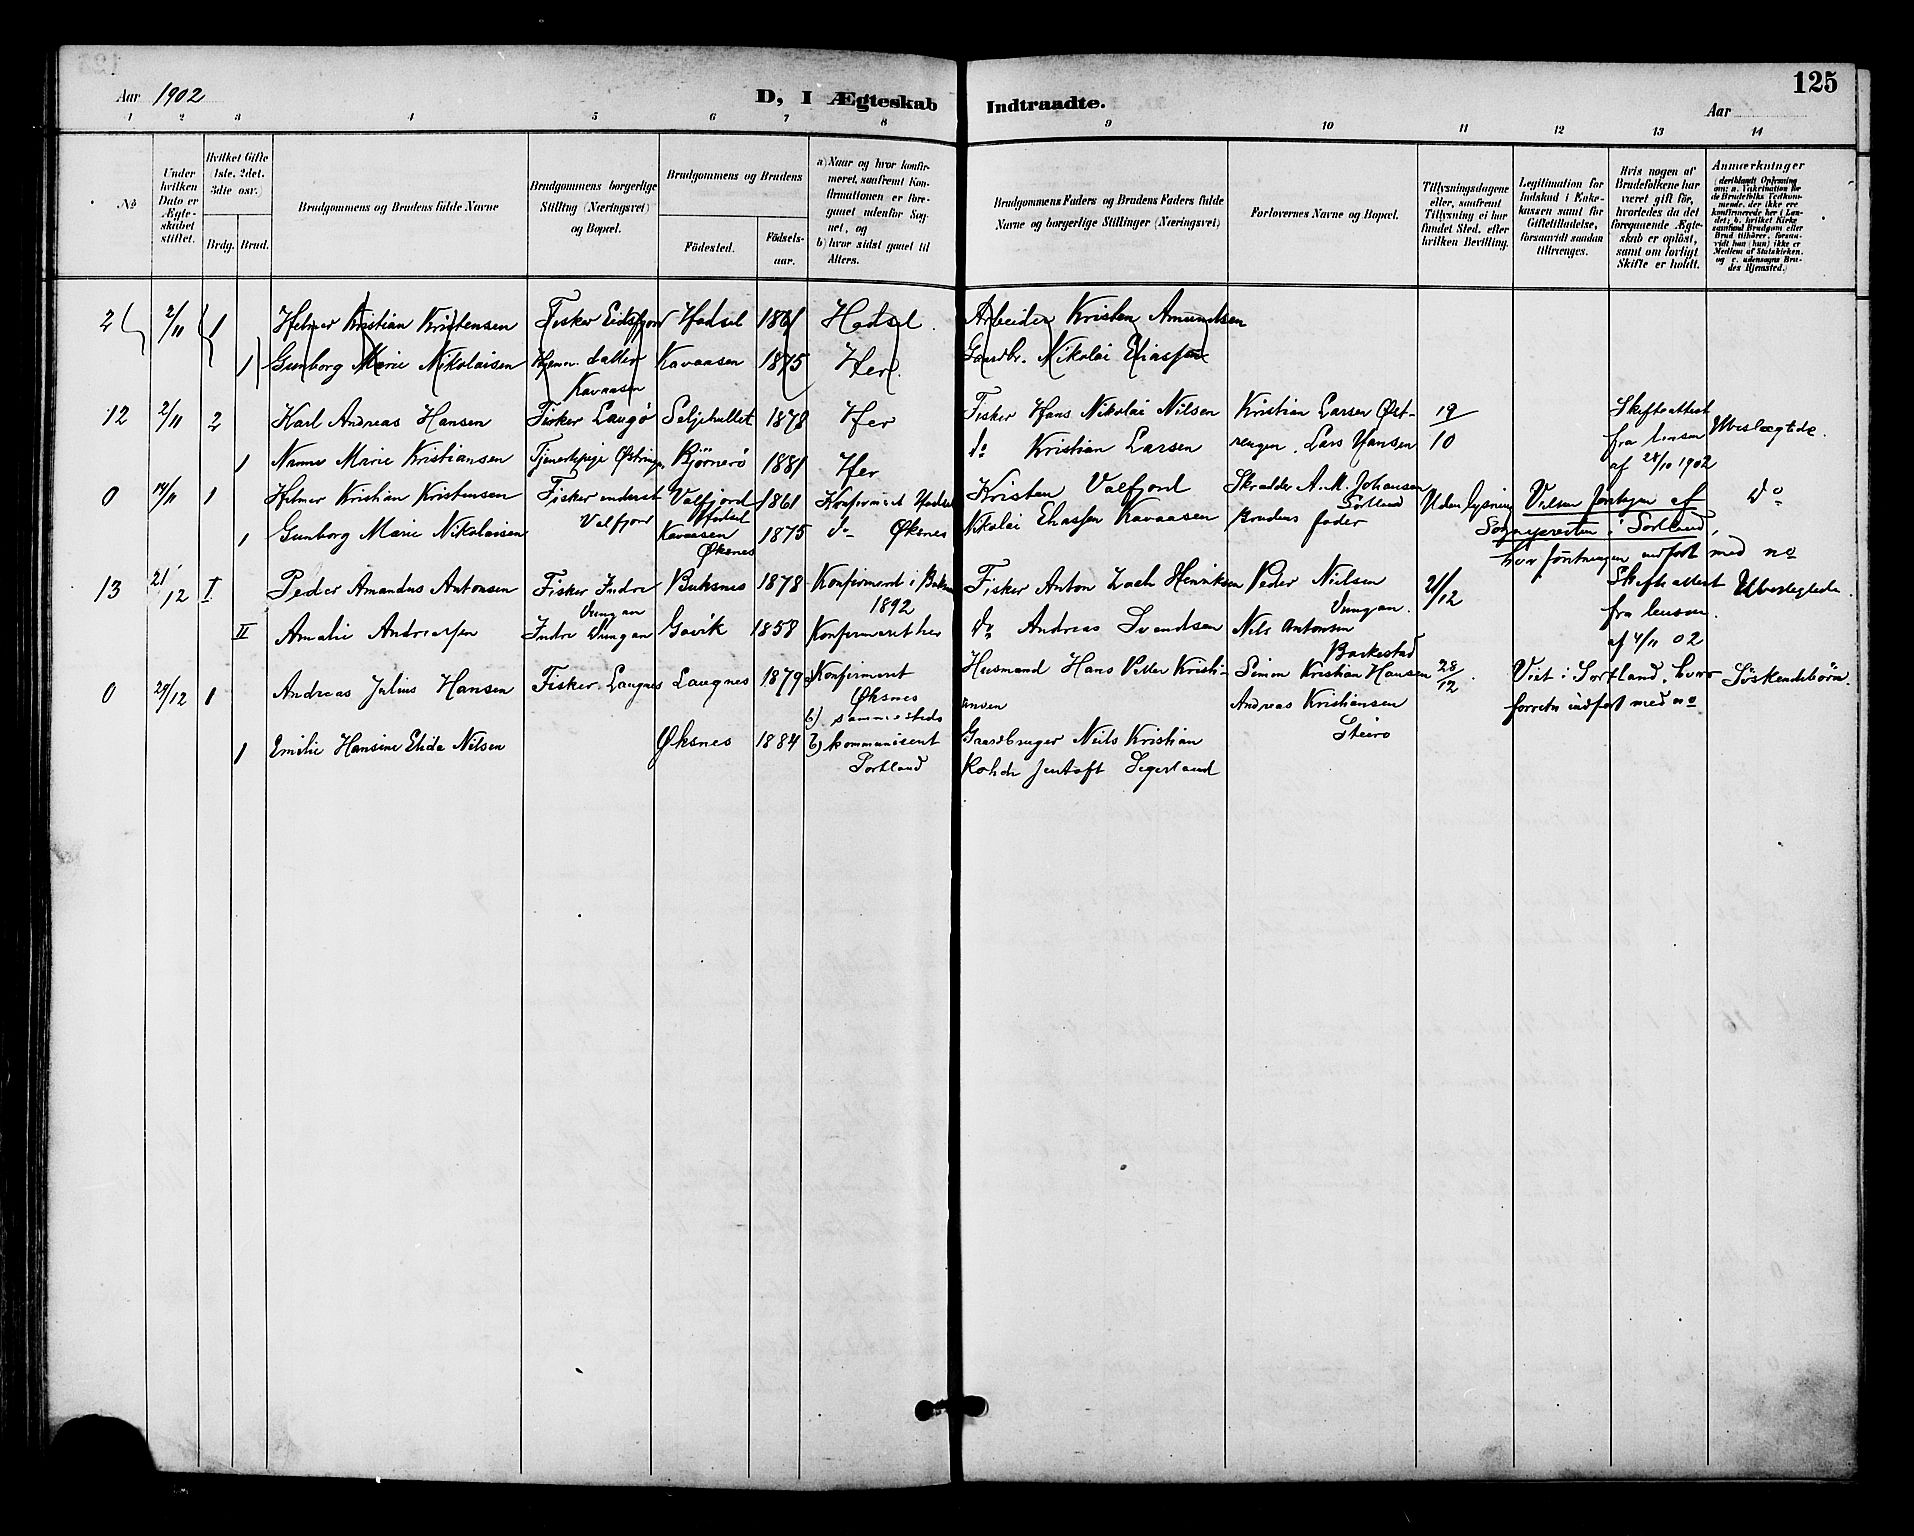 Aar 1902
D, I Ægteskab Indtraadte.
125
Aar
1 2 3 4 5 6 7 8 9 10 11 12 13 14
No
Under hvilken Dato er Ægteskabet stiftet.
Hvilket Gifte (1ste, 2det, 3dte osv.)
Brdg. Brud.
Brudgommens og Brudens fulde Navne
Brudgommens borgerlige Stilling (Næringsvei) og Bopæl.
Brudgommens og Brudens
Fødested. Fødselsaar.
a) Naar og hvor konfirmeret, saafremt Konfirmationen er foregaaet udenfor Sognet, og
b) hvor sidst gaaet til Alters.
Brudgommens Faders og Brudens Faders fulde Navne og borgerlige Stillinger (Næringsvei)
Forlovernes Navne og Bopæl.
Tillysningsdagene eller, saafremt Tillysning ei har fundet Sted, efter hvilken Bevilling.
Legitimation for Indskud i Enkekassen samt for Giftetilladelse, forsaavidt saadan tiltrænges.
Hvis nogen af Brudefolkene har været gift før, hvorledes da det foregaaende Ægteskab er opløst, samt om lovligt Skifte er holdt.
Anmærkninger
2 2/11 1 Helmer Kristian Kristensen Fisker Eidsfjord Hadsel 1861 Hadsel. Arbeider Kristen Amundsen
1 Gunborg Marie Nikolaisen Hjemv. datter Kavaasen 1875 Her. Gaardbr. Nikolai Eliassen
Kavaasen
12 2/11 2 Karl Andreas Hansen Fisker Langø 1878 Her Fisker Hans Nikolai Nilsen Kristian Larsen Øst- 19/10 Skifteattest Ubeslægtede.
1 Marie Kristiansen Tjenestepige 1881 Her do Kristian Larsen Lars Hansen fra af 28/10 1902
0 14/11 1 Helmer Kristian Kristensen Fisker Valfjord 1861 Konfirmeret Hadsel Kristen Valfjord Skrædder A. M. Johansen Uden lysning af do
Valfjord Hadsel Sortland
1 Gunborg Marie Nikolaisen Kavaasen 1875 do Øksnes Nikolai Eliassen Kavaasen Brudens fader Sognepresten i Sortland,
Øksnes
hvor indført med no
13 21/12 I Peder Amandus Antonsen Fisker Indre Buksnes 1878 Konfirmeret i Buksnes Fisker Anton Zach Henriksen Peder Nielsen 21/12 Skifteattest Ubeslegtede.
1892 fra
II Amalie Andreassen Indre Gavik 1858 Konfirmeret her do Andreas Svendsen Nils Antonsen af 4/11 02
Barkestad
0 29/12 1 Andreas Julius Hansen Fisker. Langnes Langnes 1879 Konfirmeret Husmand Hans Peder Kristi- Simon Kristian Hansen 28/12. Viet i Sortland, hvor Söskendebörn.
Øksnes ansen Andreas Kristiansen indført med no
b) sammesteds Steiro
1 Emilie Hansine Elida Nilsen Øksnes 1884 b) kommuniseret Gaardbruger Nils Kristian
Sortland Jentoft